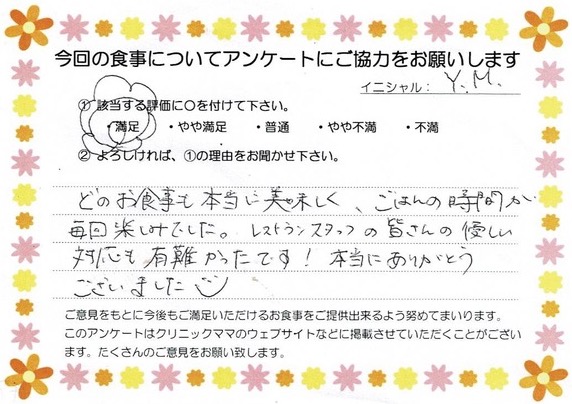 今回の食事についてアンケートにご協力をお願いします
イニシャル： Y.M.
① 該当する評価に〇を付けて下さい。
・満足 ・やや満足 ・普通 ・やや不満 ・不満
② よろしければ、①の理由をお聞かせ下さい。
どのお食事も本当に美味しく、ごはんの時間が
毎回楽しみでした。レストランスタッフの皆さんの優しい
対応も有難かったです！本当にありがとう
ございました
ご意見をもとに今後もご満足いただけるお食事をご提供出来るよう努めてまいります。
このアンケートはクリニックママのウェブサイトなどに掲載させていただくことがござい
ます。たくさんのご意見をお願い致します。